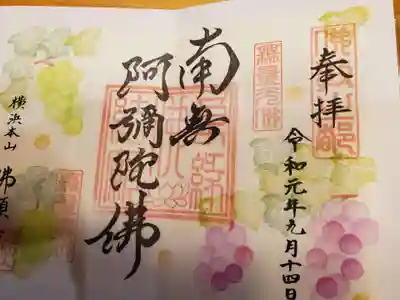 奉拝
令和元年九月十四日
南無
阿彌陀佛
横浜本山